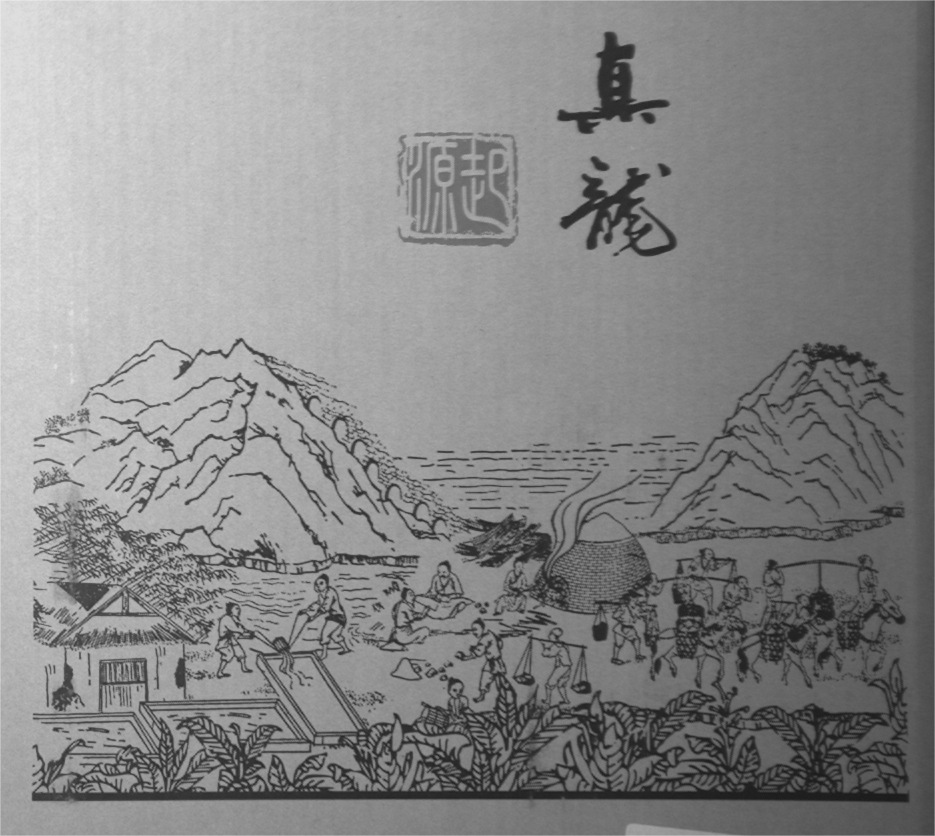 真龍
起源